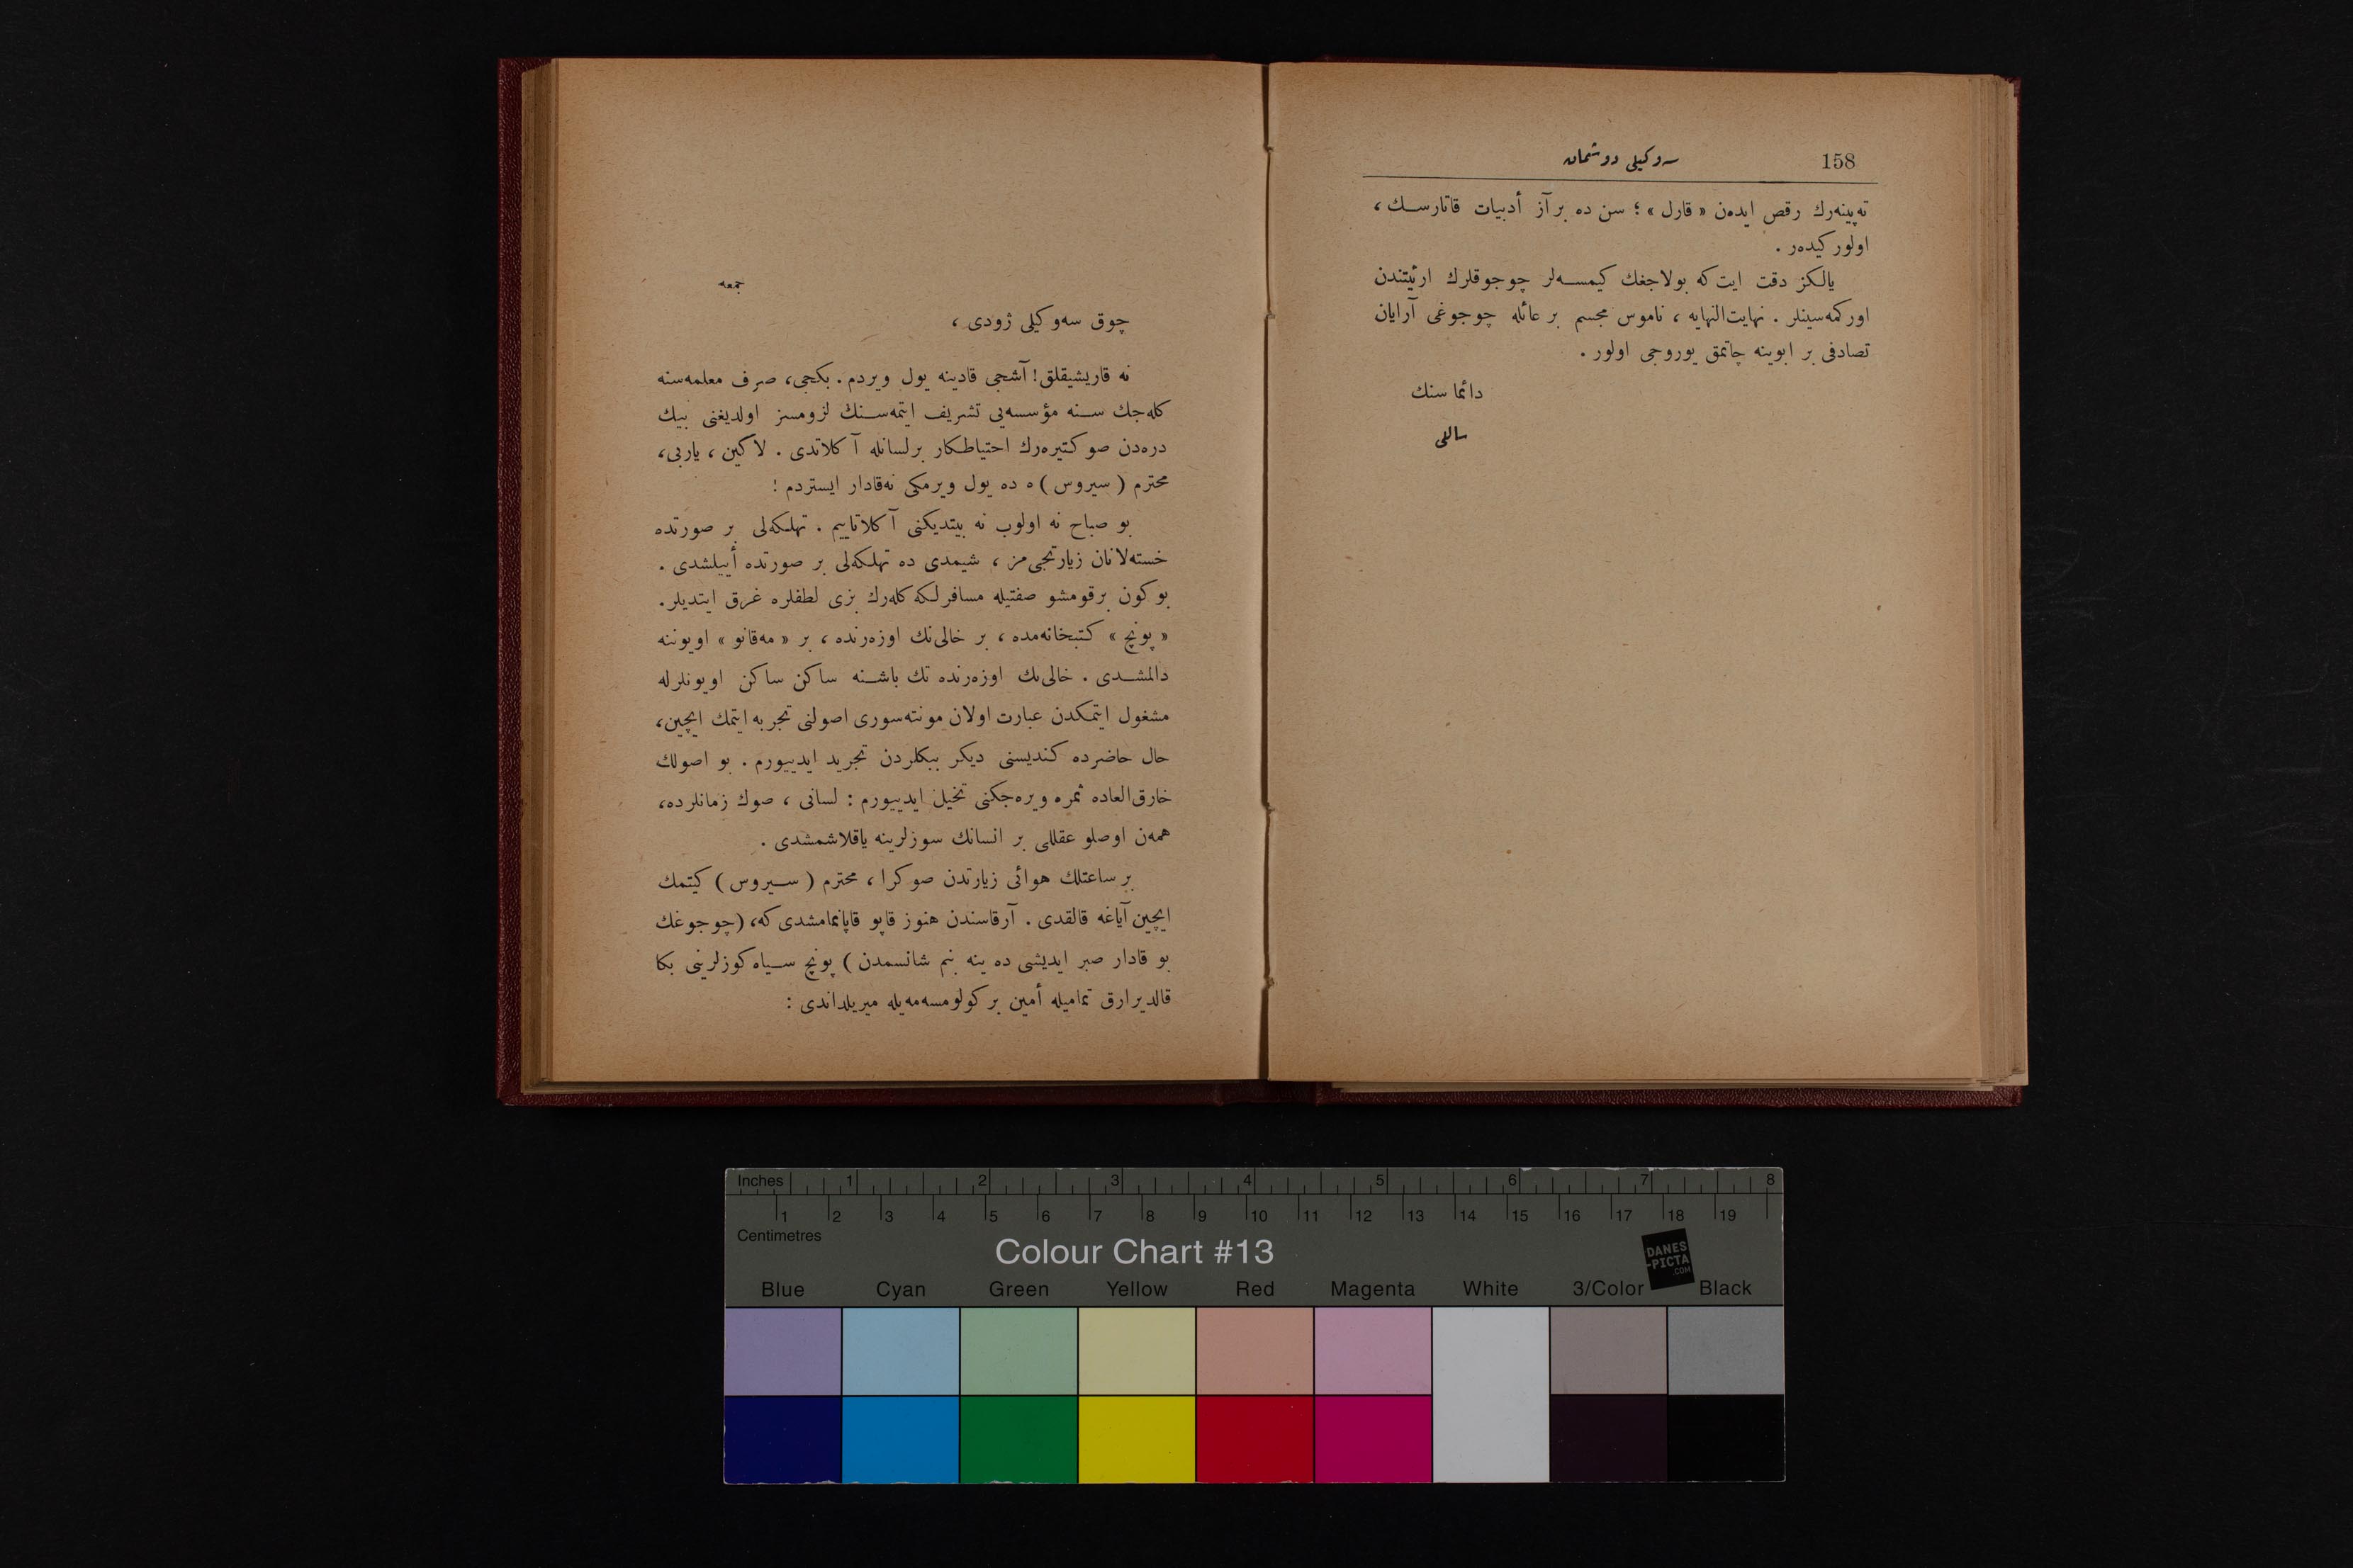 158
سه‌وكیلی دوشمان
ته‌پینه‌رك رقص ایده‌ن « قارل » ؛ سن ده بر آز أدبیات قاتارسـك ،
اولور كیده‌ر .
یالكز دقت ایت كه بولاجغك كیمسـه‌لر چوجوقلرك ارثیتندن
اوركمه‌سینلر . نهایت‌النهایه ، ناموس مجسم بر عائله چوجوغی آرایان
تصادفی بر ابوینه چاتمق یوروجی اولور .
دائما سنك
ساللی
جمعه
چوق سه‌وكیلی ژودی ،
نه قاریشیقلق ! آشجی قادینه یول ویردم . بكجی، صرف معلمه‌سنه
كله‌جك سـنه مؤسسه‌یی تشریف ایتمه‌سـنك لزومسز اولدیغنی بیك
دره‌دن صو كتیره‌رك احتیاطكار برلسانله آكلاتدی . لاكین ، یاربی،
محترم ( سیروس ) ه ده یول ویرمكی نه‌قادار ایستردم !
بو صباح نه اولوب نه بیتدیكنی آكلاتاییم . تهلكه‌لی بر صورتده
خسته‌لانان زیارتجی‌مز ، شیمدی ده تهلكه‌لی بر صورتده أییلشدی .
بو كون برقومشو صفتیله مسافرلكه كله‌رك بزی لطفلره غرق ایتدیلر.
« پونچ » كتبخانه‌مده ، بر خالی‌نك اوزه‌رنده ، بر « مه‌قانو » اویوننه
دالمشـدی . خالی‌نك اوزه‌رنده تك باشـنه ساكن ساكن اویونلرله
مشغول ایتمكدن عبارت اولان مونته‌سوری اصولنی تجربه ایتمك ایچین،
حال حاضرده كندیسنی دیكر ببكلردن تجرید ایدییورم . بو اصولك
خارق‌العاده ثمره ویره‌جكنی تخیل ایدییورم : لسانی ، صوك زمانلرده،
همه‌ن اوصلو عقللی بر انسانك سوزلرینه یاقلاشمشدی .
بر ساعتلك هوائی زیارتدن صوكرا ، محترم ( سـیروس ) كیتمك
ایچین آیاغه قالقدی . آرقاسندن هنوز قاپو قاپانمامشدی كه، (چوجوغك
بو قادار صبر ایدیشی ده ینه بنم شانسمدن ) پونچ سـیاه كوزلرینی بكا
قالدیرارق تمامیله أمین بر كولومسه‌مه‌یله میریلداندی :
Inches 1 2 3 4 5 6 7 8
1 2 3 4 5 6 7 8 9 10 11 12 13 14 15 16 17 18 19
Centimetres
Colour Chart #13
DANES
-PICTA
.COM
Blue Cyan Green Yellow Red Magenta White 3/Color Black